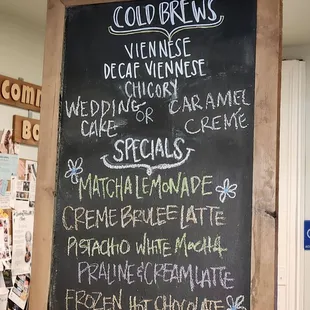 COLD BREWS
VIENNESE
DECAF VIENNESE
CHICORY
WEDDING CAKE OR CARAMEL CREME
SPECIALS
MATCHA LEMONADE
CREME BRULEE LATTE
PISTACHIO WHITE MOCHA
PRALINE & CREAM LATTE
FROZEN HOT CHOCOLATE
COMM
BO